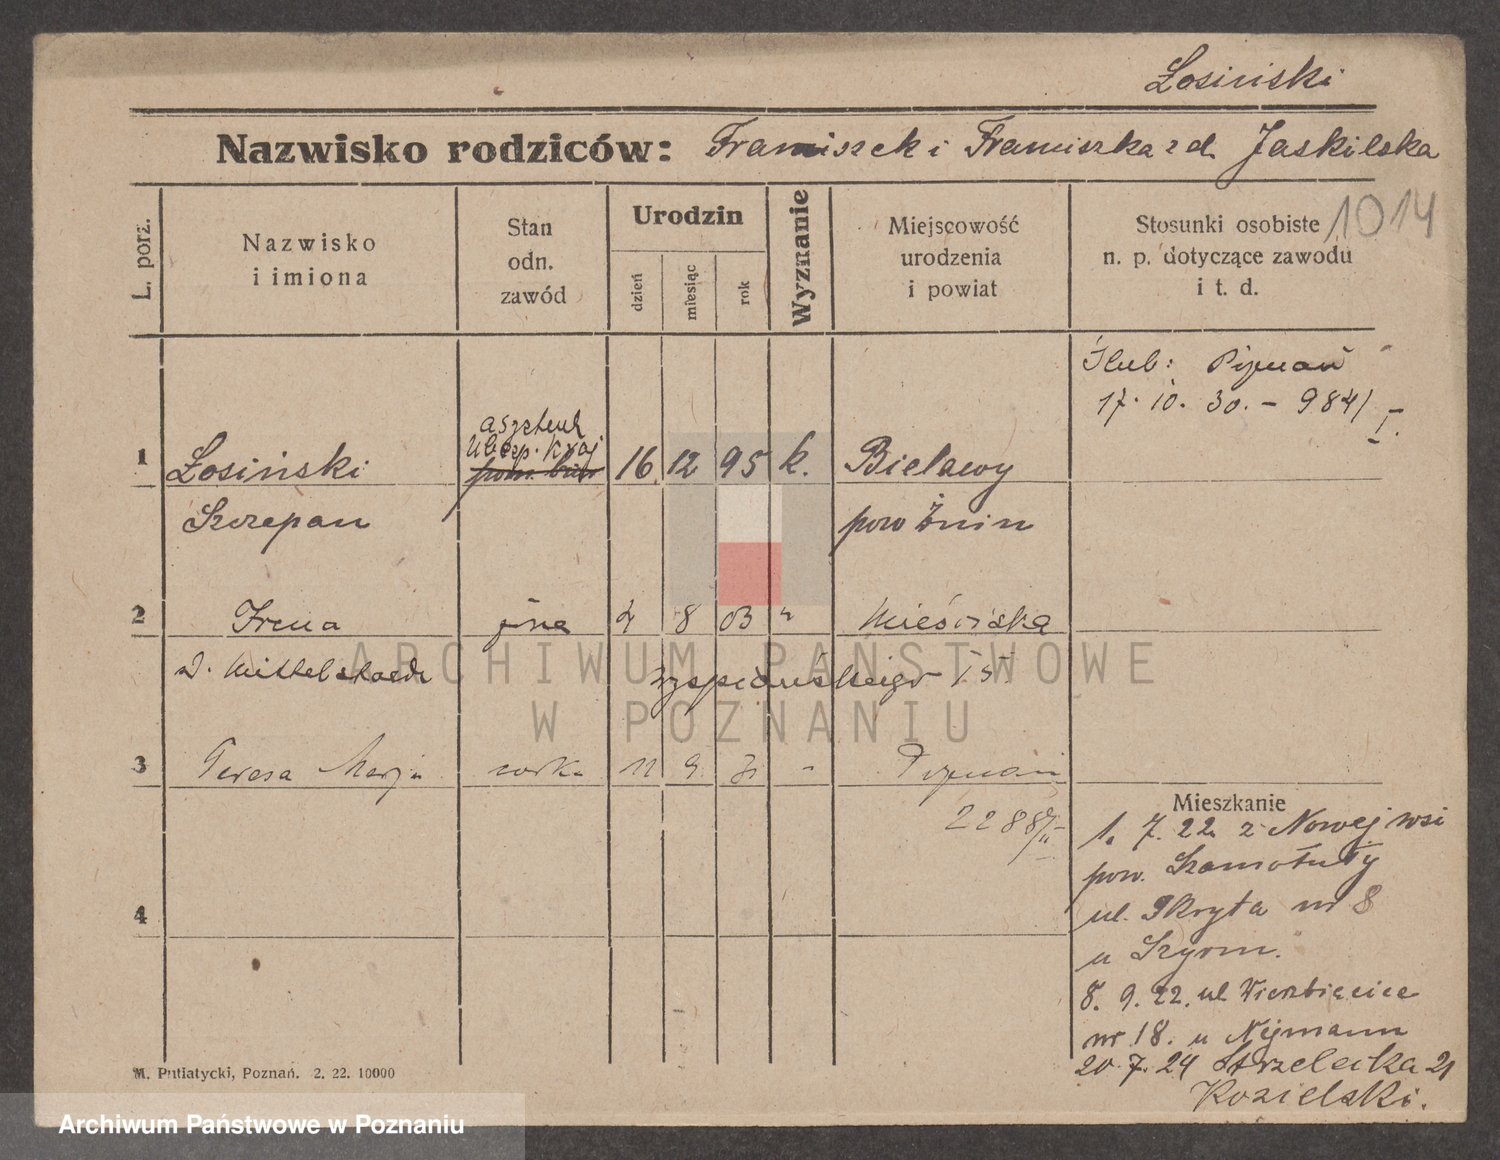 Łosiński
Nazwisko rodziców: Franciszek i Franciszka z d. Jaskilska
1014
L. porz.
Nazwisko
i imiona
Stan
odn.
zawód
Urodzin
dzień
miesiąc
rok
Wyznanie
Miejscowość
urodzenia
i powiat
Stosunki osobiste
n. p. dotyczące zawodu
i t. d.
Ślub: Poznań
17. 10. 30. – 984/I.
asystent
Ubezp. Kraj
1 Łosiński 16. 12 95 k. Bielawy
Szczepan pow Żnin
2 Irena żona 4 8 03 " Mieściska
d. Mittelstaedt Wyspiańskiego 15
3 Teresa Marja córka 11 9 31 " Poznań
2288/II
4
Mieszkanie
1. 7. 22 z Nowej wsi
pow. Szamotuły
ul. Skryta nr 8
u Szym.
8. 9. 22. ul Wierzbięcice
nr 18. u Nejmann
20. 7. 24 Strzelecka 21
Kozielski.
M. Putiatycki, Poznań. 2. 22. 10000
ARCHIWUM PAŃSTWOWE
W POZNANIU
Archiwum Państwowe w Poznaniu